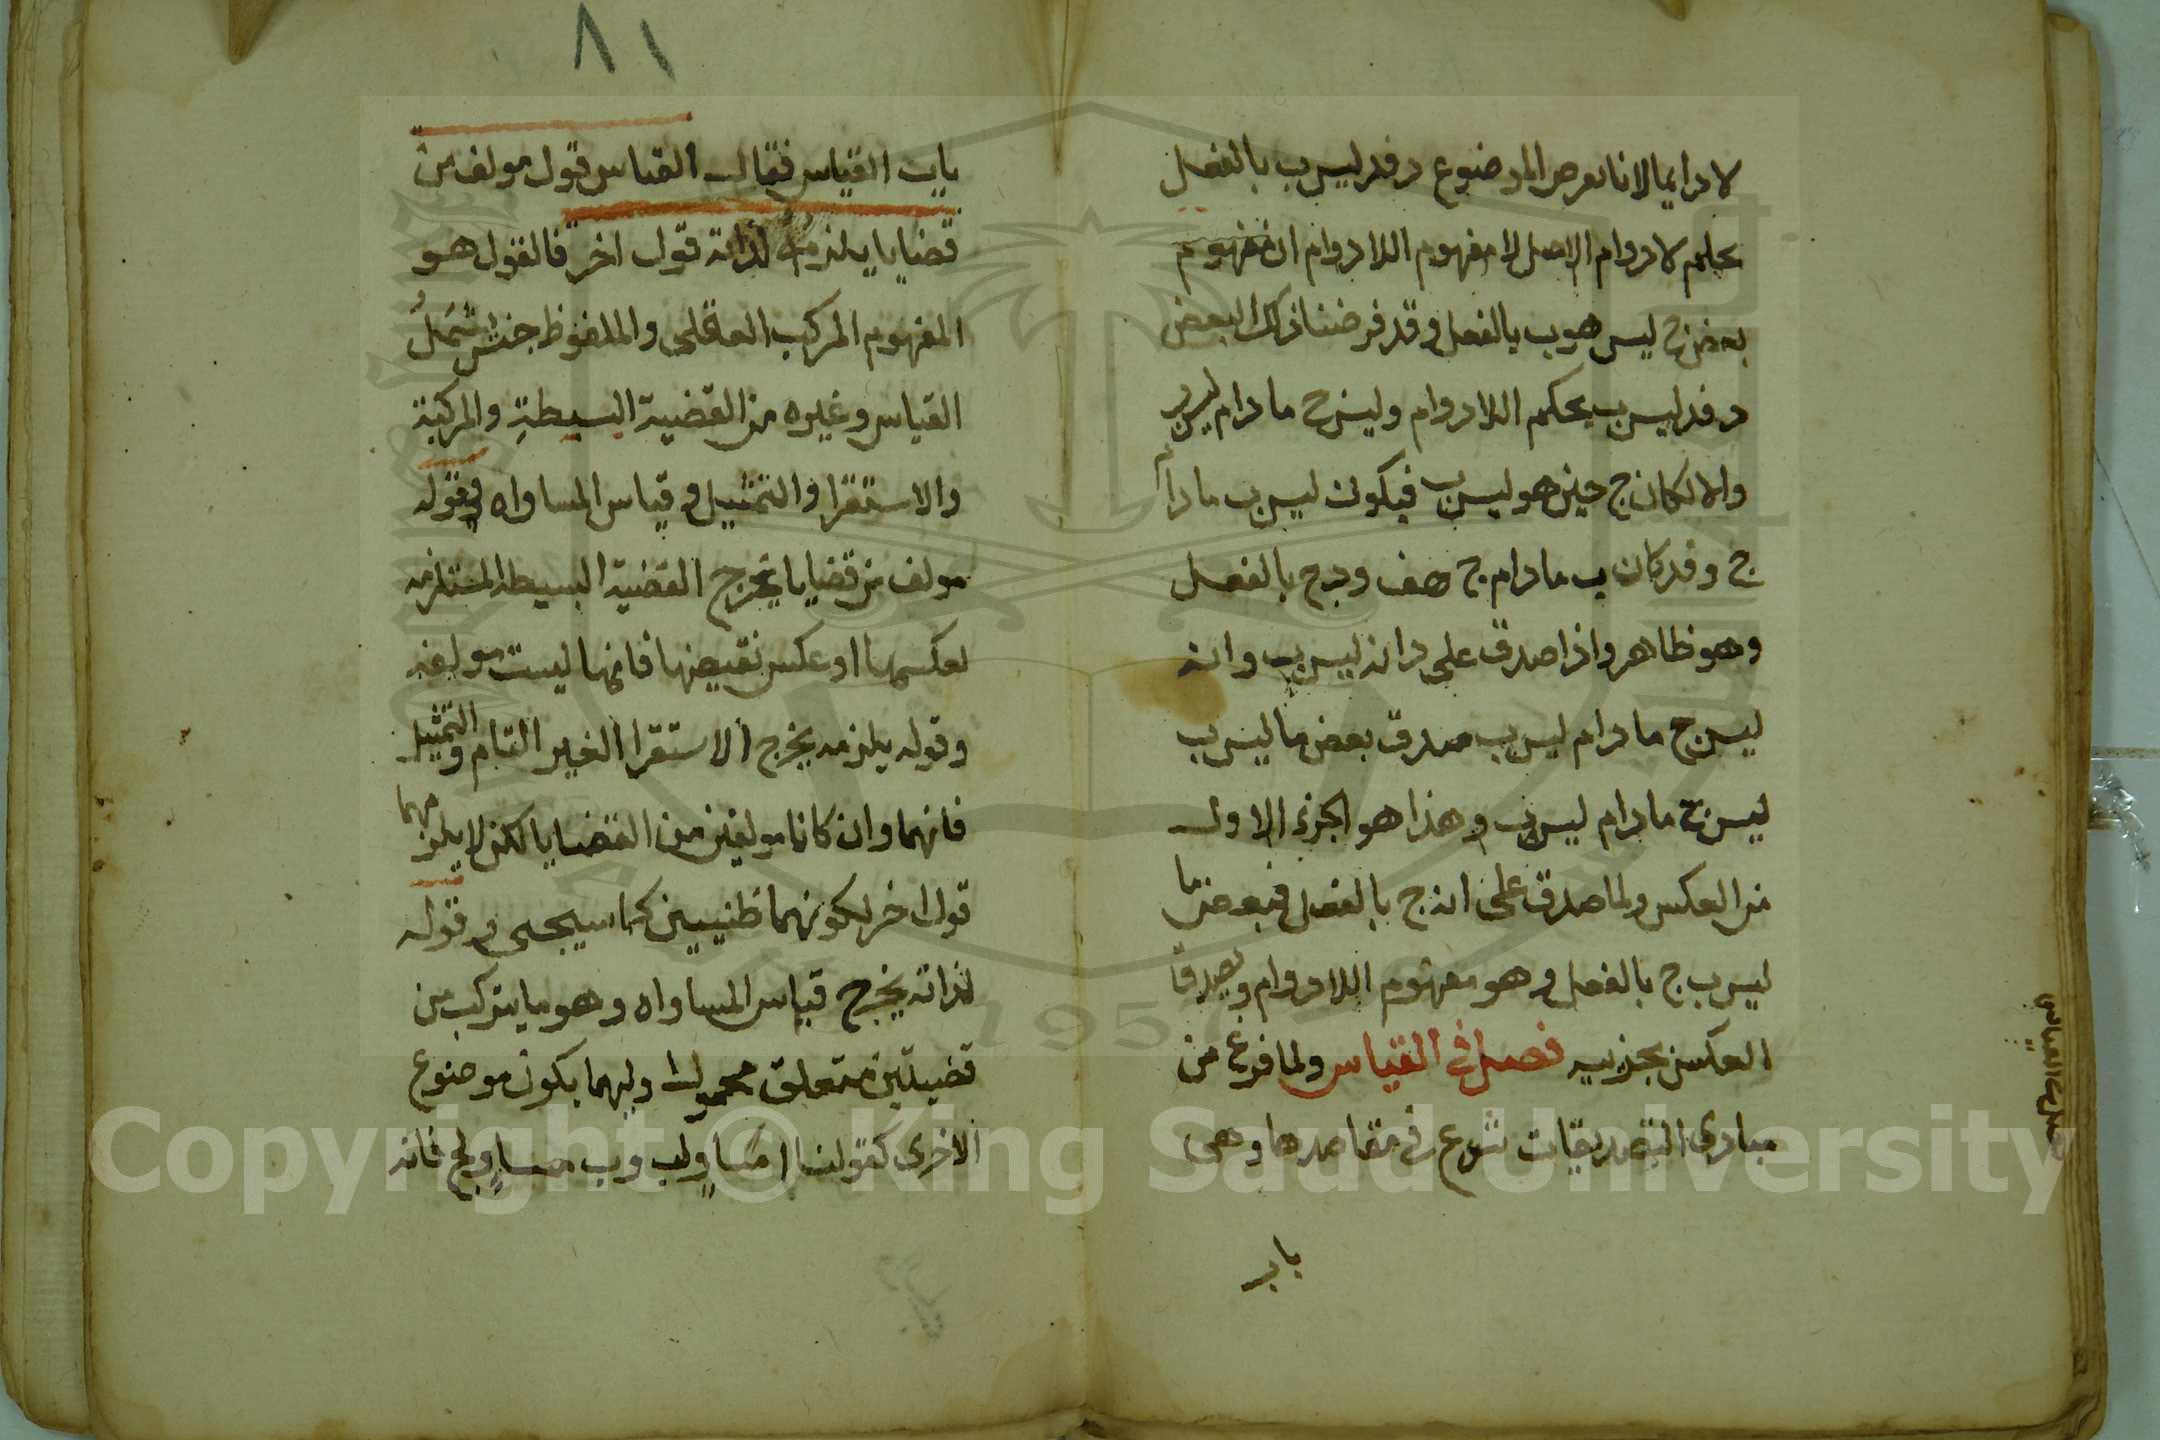 لا دايما لانا نعرض الموضوع د فد ليس ب بالفعل
بحكم لا دوام الاصل لا مفهوم اللادوام ان مفهوم
بعض ج ليس هو ب بالفعل وقد فرضنا ذلك البعض
د فد ليس ب بحكم اللادوام وليس ج ما دام ليس ب
والا لكان ج حين هو ليس ب فيكون ليس ب ما دام
ج وقد كان ب ما دام ج هف و د ج بالفعل
وهو ظاهر واذا صدق على د انه ليس ب وانه
ليس ج ما دام ليس ب صدق بعض ما ليس ب
ليس ج ما دام ليس ب وهذا هو الجزء الاول
من العكس ولما صدق على انه ج بالفعل فبعض ما
ليس ب ج بالفعل وهو مفهوم اللادوام وبصدق
العكس بجزييه فصل في القياس ولما فرغ من
مبادى التصديقات شرع في مقاصدها وهى
باب
٨١
باب القياس فقال القياس قول مولف من
قضايا يلزمه لذاته قول اخر فالقول هو
المفهوم المركب العقلى والملفوظ جنس يشمل
القياس وغيره من القضية البسيطة والمركبة
والاستقرا والتمثيل وقياس المساواه وبقوله
مولف من قضايا يخرج القضية البسيطه المستلزمه
لعكسها او عكس نقيضها فانها ليست مولفه
وقوله يلزمه يخرج الاستقرا الغير التام والتمثيل
فانهما وان كانا مولفين من القضايا لكن لا يلزمهما
قول اخر لكونهما ظنيين كما سيجى وقوله
لذاته يخرج قياس المساواه وهو ما يتركب من
قضيتين متعلق محمول اوليهما يكون موضوع
الاخرى كقولنا ا مساوٍ لب وب مساوٍ لج فانه
Copyright © King Saud University
1957